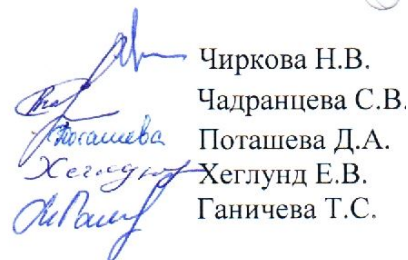 Чиркова Н.В.
Чадранцева С.В.
Поташева Поташева Д.А.
Хеглунд Хеглунд Е.В.
Ганичева Т.С.